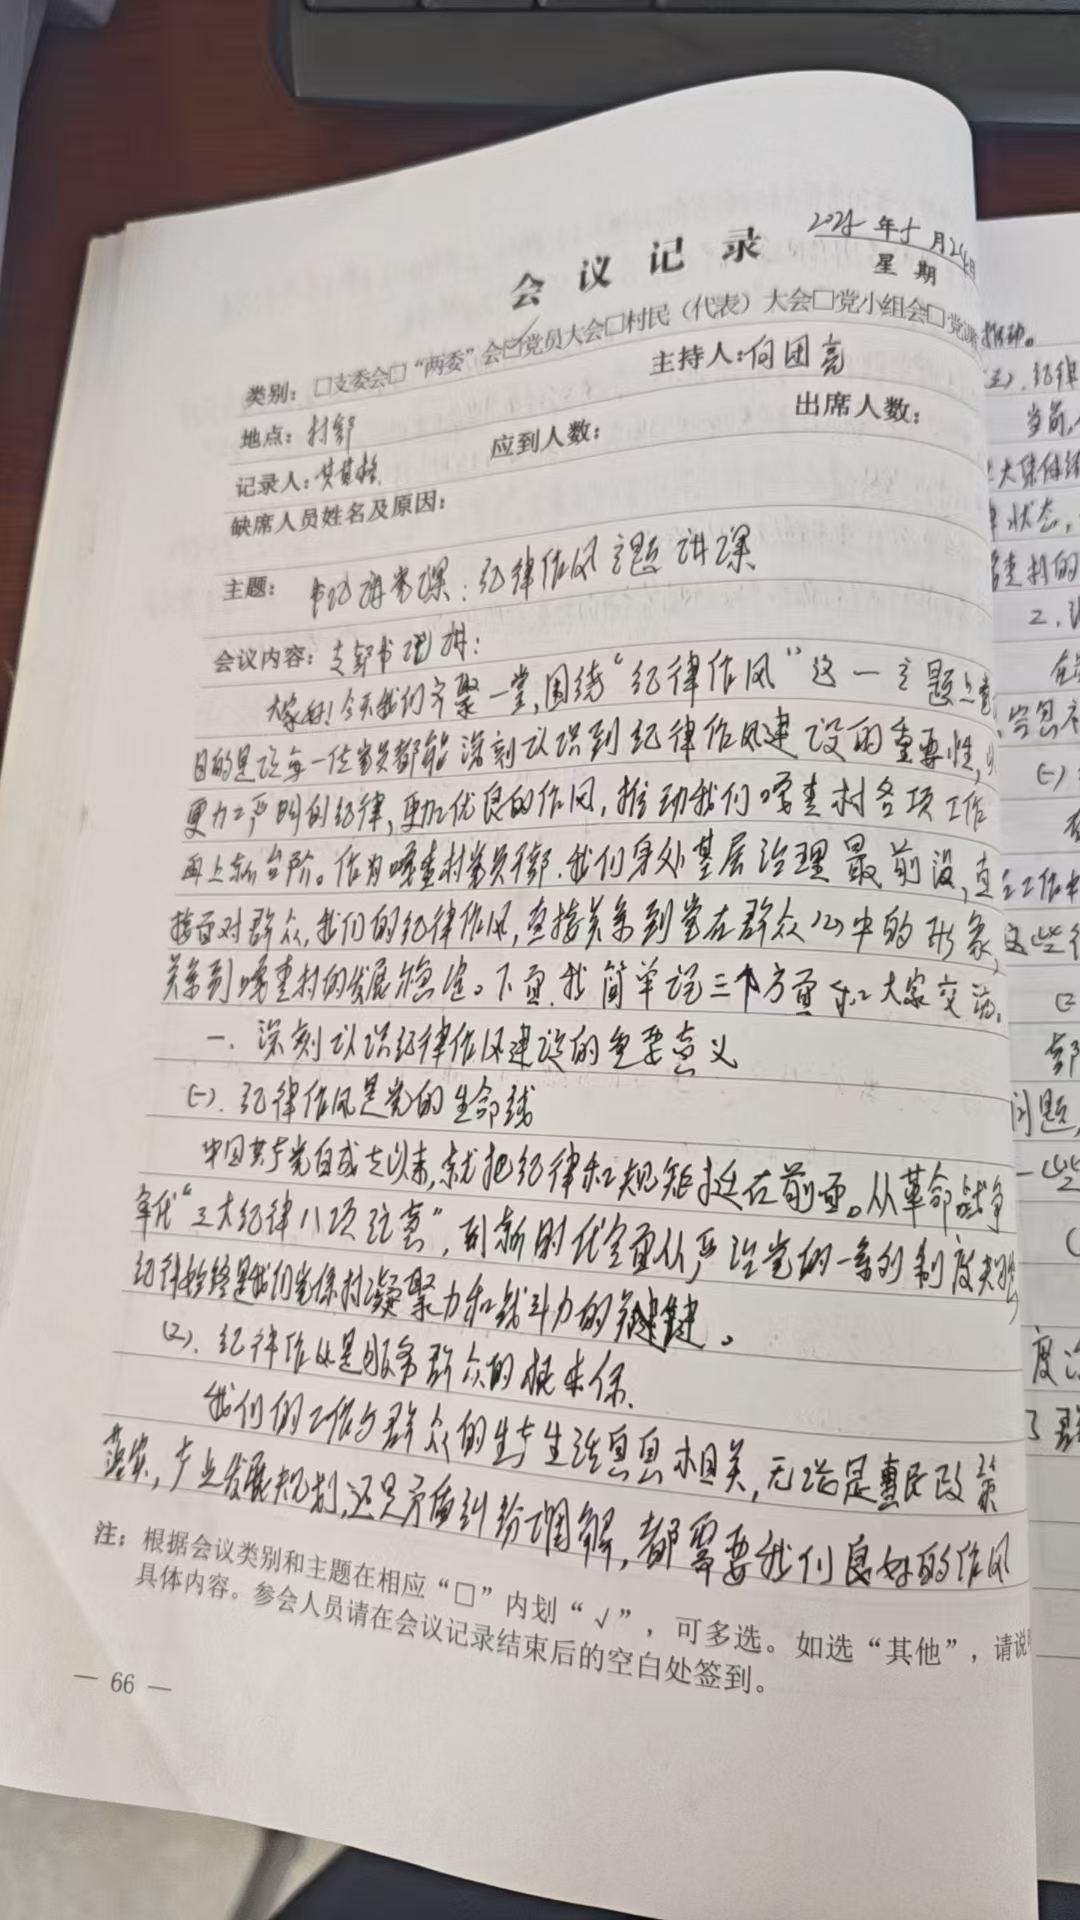 会议记录
2025年5月24日
星期
类别：□支委会□“两委”会☑党员大会□村民（代表）大会□党小组会□党课
地点：村部 主持人：向团亮
记录人： 应到人数： 出席人数：
缺席人员姓名及原因：
主题：书记讲党课：纪律作风主题讲课
会议内容：支部书记讲：
大家好！今天我们齐聚一堂，围绕“纪律作风”这一主题
目的是让每一位党员都能深刻认识到纪律作风建设的重要性，以
更加严明的纪律，更加优良的作风，推动我们喀查村各项工作
再上新台阶。作为喀查村党员干部，我们身处基层治理最前沿，直
接面对群众，我们的纪律作风，直接关系到党在群众心中的形象，
关系到喀查村的发展稳定。下面，我简单说三个方面和大家交流。
一、深刻认识纪律作风建设的重要意义
(一)．纪律作风是党的生命线
中国共产党自成立以来，就把纪律和规矩挺在前面。从革命战争
年代“三大纪律八项注意”，到新时代全面从严治党的一系列制度规
纪律始终是我们党保持凝聚力和战斗力的关键。
(2)．纪律作风是服务群众的根本保．
我们的工作与群众的生产生活息息相关，无论是惠民政策
落实，产业发展规划，还是矛盾纠纷调解，都需要我们良好的作风
注：根据会议类别和主题在相应“□”内划“√”，可多选。如选“其他”，请说
具体内容。参会人员请在会议记录结束后的空白处签到。
— 66 —
纪律
当前，
大集体
状态，
查村的
2．
(一)
工作中
这些行
问题，
一些
度